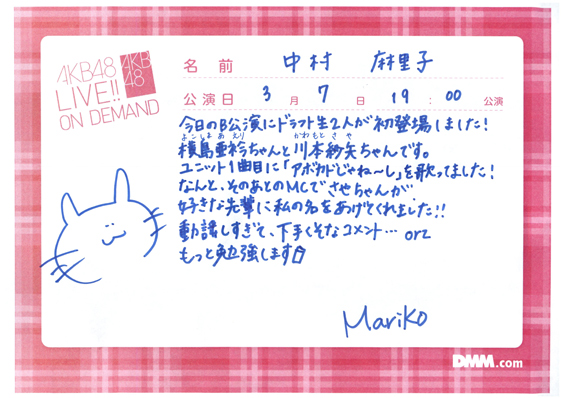 AKB48
LIVE!!
ON DEMAND
AKB
48
名前 中村 麻里子
公演日 3月7日 19:00 公演
今日のB公演にドラフト生2人が初登場しました!
よこしまあえり かわもとさや
横島亜衿ちゃんと川本紗矢ちゃんです。
ユニット1曲目に「アボガドじゃね〜し」を歌ってました!
なんと、そのあとのMCで、さやちゃんが
好きな先輩に私の名をあげてくれました!!
動揺しすぎて、下手くそなコメント… orz
もっと勉強します
Mariko
DMM.com